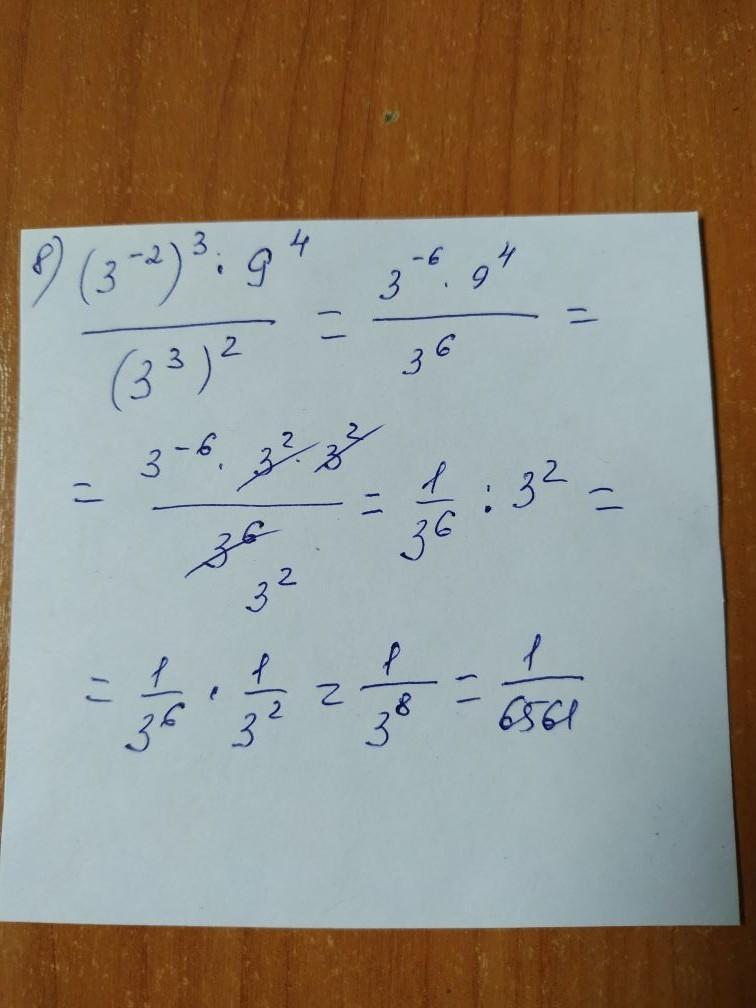 8) (3^-2)^3 · 9^4 / (3^3)^2 = 3^-6 · 9^4 / 3^6 =
= 3^-6 · 3^2 · 3^2 / 3^6 3^2 = 1/3^6 : 3^2 =
= 1/3^6 · 1/3^2 = 1/3^8 = 1/6561